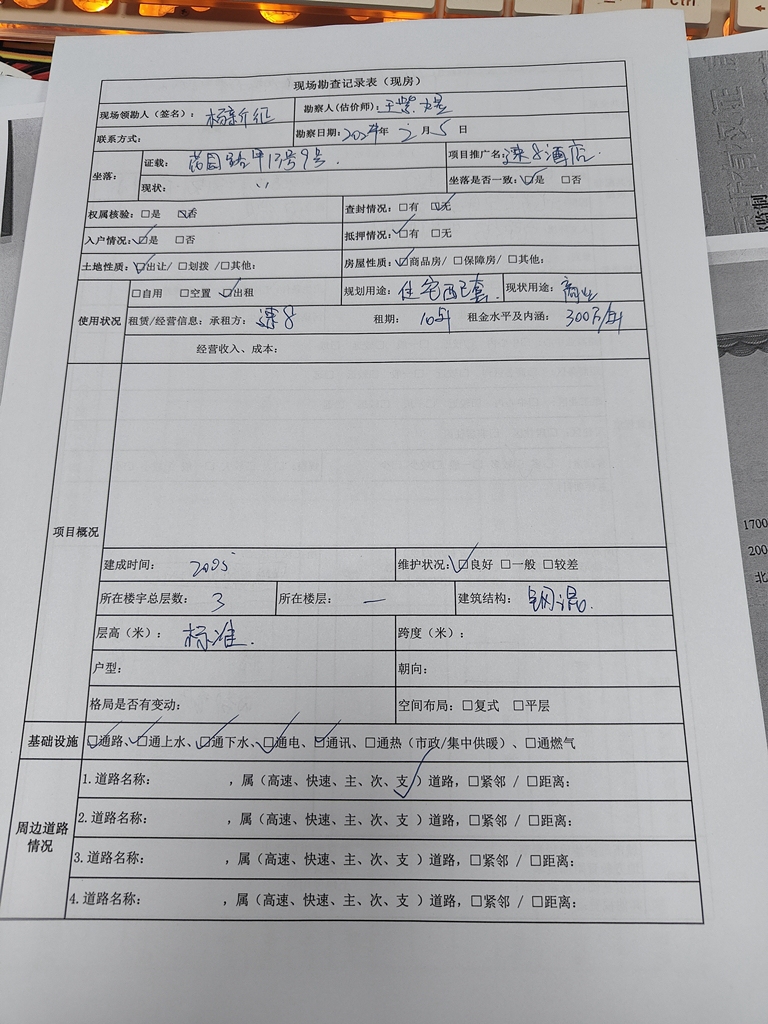 Ctrl
现场勘查记录表（现房）
现场领勘人（签名）： 勘察人(估价师)：
联系方式： 勘察日期：2024年 2 月 5 日
坐落： 证载：花园路甲13号9号. 项目推广名：速8酒店.
现状： 〃 坐落是否一致：☑是 □否
权属核验：□是 ☑否 查封情况：□有 ☑无
入户情况：☑是 □否 抵押情况：☑有 □无
土地性质：☑出让/ □划拨 /□其他： 房屋性质：☑商品房/ □保障房/ □其他：
使用状况 □自用 □空置 ☑出租 规划用途：住宅配套. 现状用途：商业
租赁/经营信息：承租方：速8 租期：10年 租金水平及内涵：300万/年
经营收入、成本：
项目概况
建成时间：2005 维护状况：☑良好 □一般 □较差
所在楼宇总层数：3 所在楼层：一 建筑结构：钢混.
层高（米）：标准. 跨度（米）：
户型： 朝向：
格局是否有变动： 空间布局：□复式 □平层
基础设施 ☑通路、☑通上水、☑通下水、☑通电、☑通讯、□通热（市政/集中供暖）、□通燃气
周边道路情况 1.道路名称： ，属（高速、快速、主、次、支✓）道路，□紧邻 / □距离：
2.道路名称： ，属（高速、快速、主、次、支 ）道路，□紧邻 / □距离：
3.道路名称： ，属（高速、快速、主、次、支 ）道路，□紧邻 / □距离：
4.道路名称： ，属（高速、快速、主、次、支 ）道路，□紧邻 / □距离：
1700
200
北